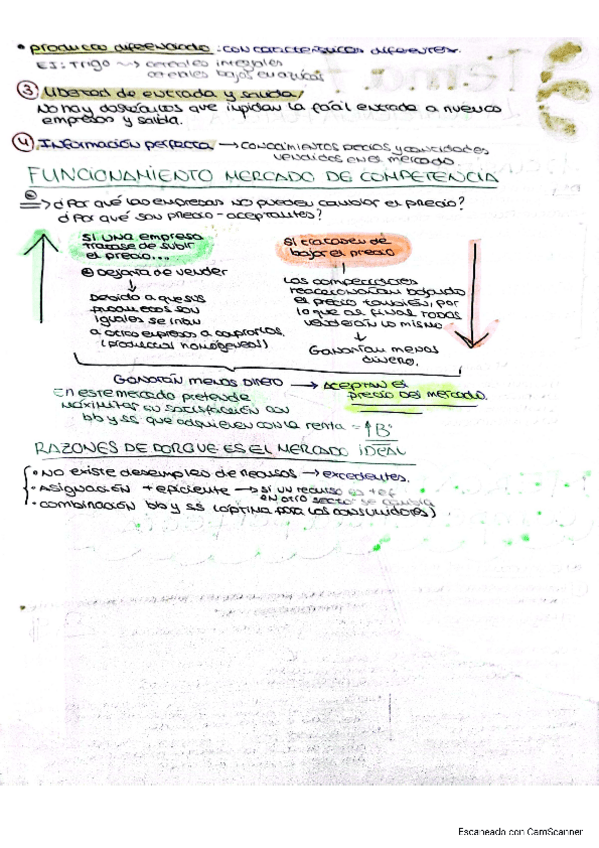 • producto diferenciado: con características diferentes.
EJ: Trigo → cereales integrales
cereales bajos en azúcar
③ Libertad de entrada y salida/
No hay obstáculos que impidan la fácil entrada a nuevas
empresas y salida.
④ Información perfecta → conocimientos precios y cantidades
vendidos en el mercado.
FUNCIONAMIENTO MERCADO DE COMPETENCIA
¿Por qué las empresas no pueden cambiar el precio?
¿Por qué son precio-aceptantes?
Si una empresa
tratase de subir
el precio...
Dejaría de vender
↓
Debido a que sus
productos son
iguales se irían
a otras empresas a comprarlos.
(productos homogéneos)
Si tratasen de
bajar el precio
Los competidores
reaccionarían bajando
el precio también, por
lo que al final todos
venderían lo mismo
↓
Ganarían menos
dinero.
Ganarán menos dinero → Aceptan el
precio del mercado.
En este mercado pretende
maximizar su satisfacción con
bb y ss que adquieren con la renta = ↑Bº
RAZONES DE PORQUE ES EL MERCADO IDEAL
• No existe desempleo de recursos → excedentes.
• Asignación + eficiente → si un recurso es + ef
en otro sector se cambia
• combinación bb y ss (óptima para los consumidores)
Escaneado con CamScanner